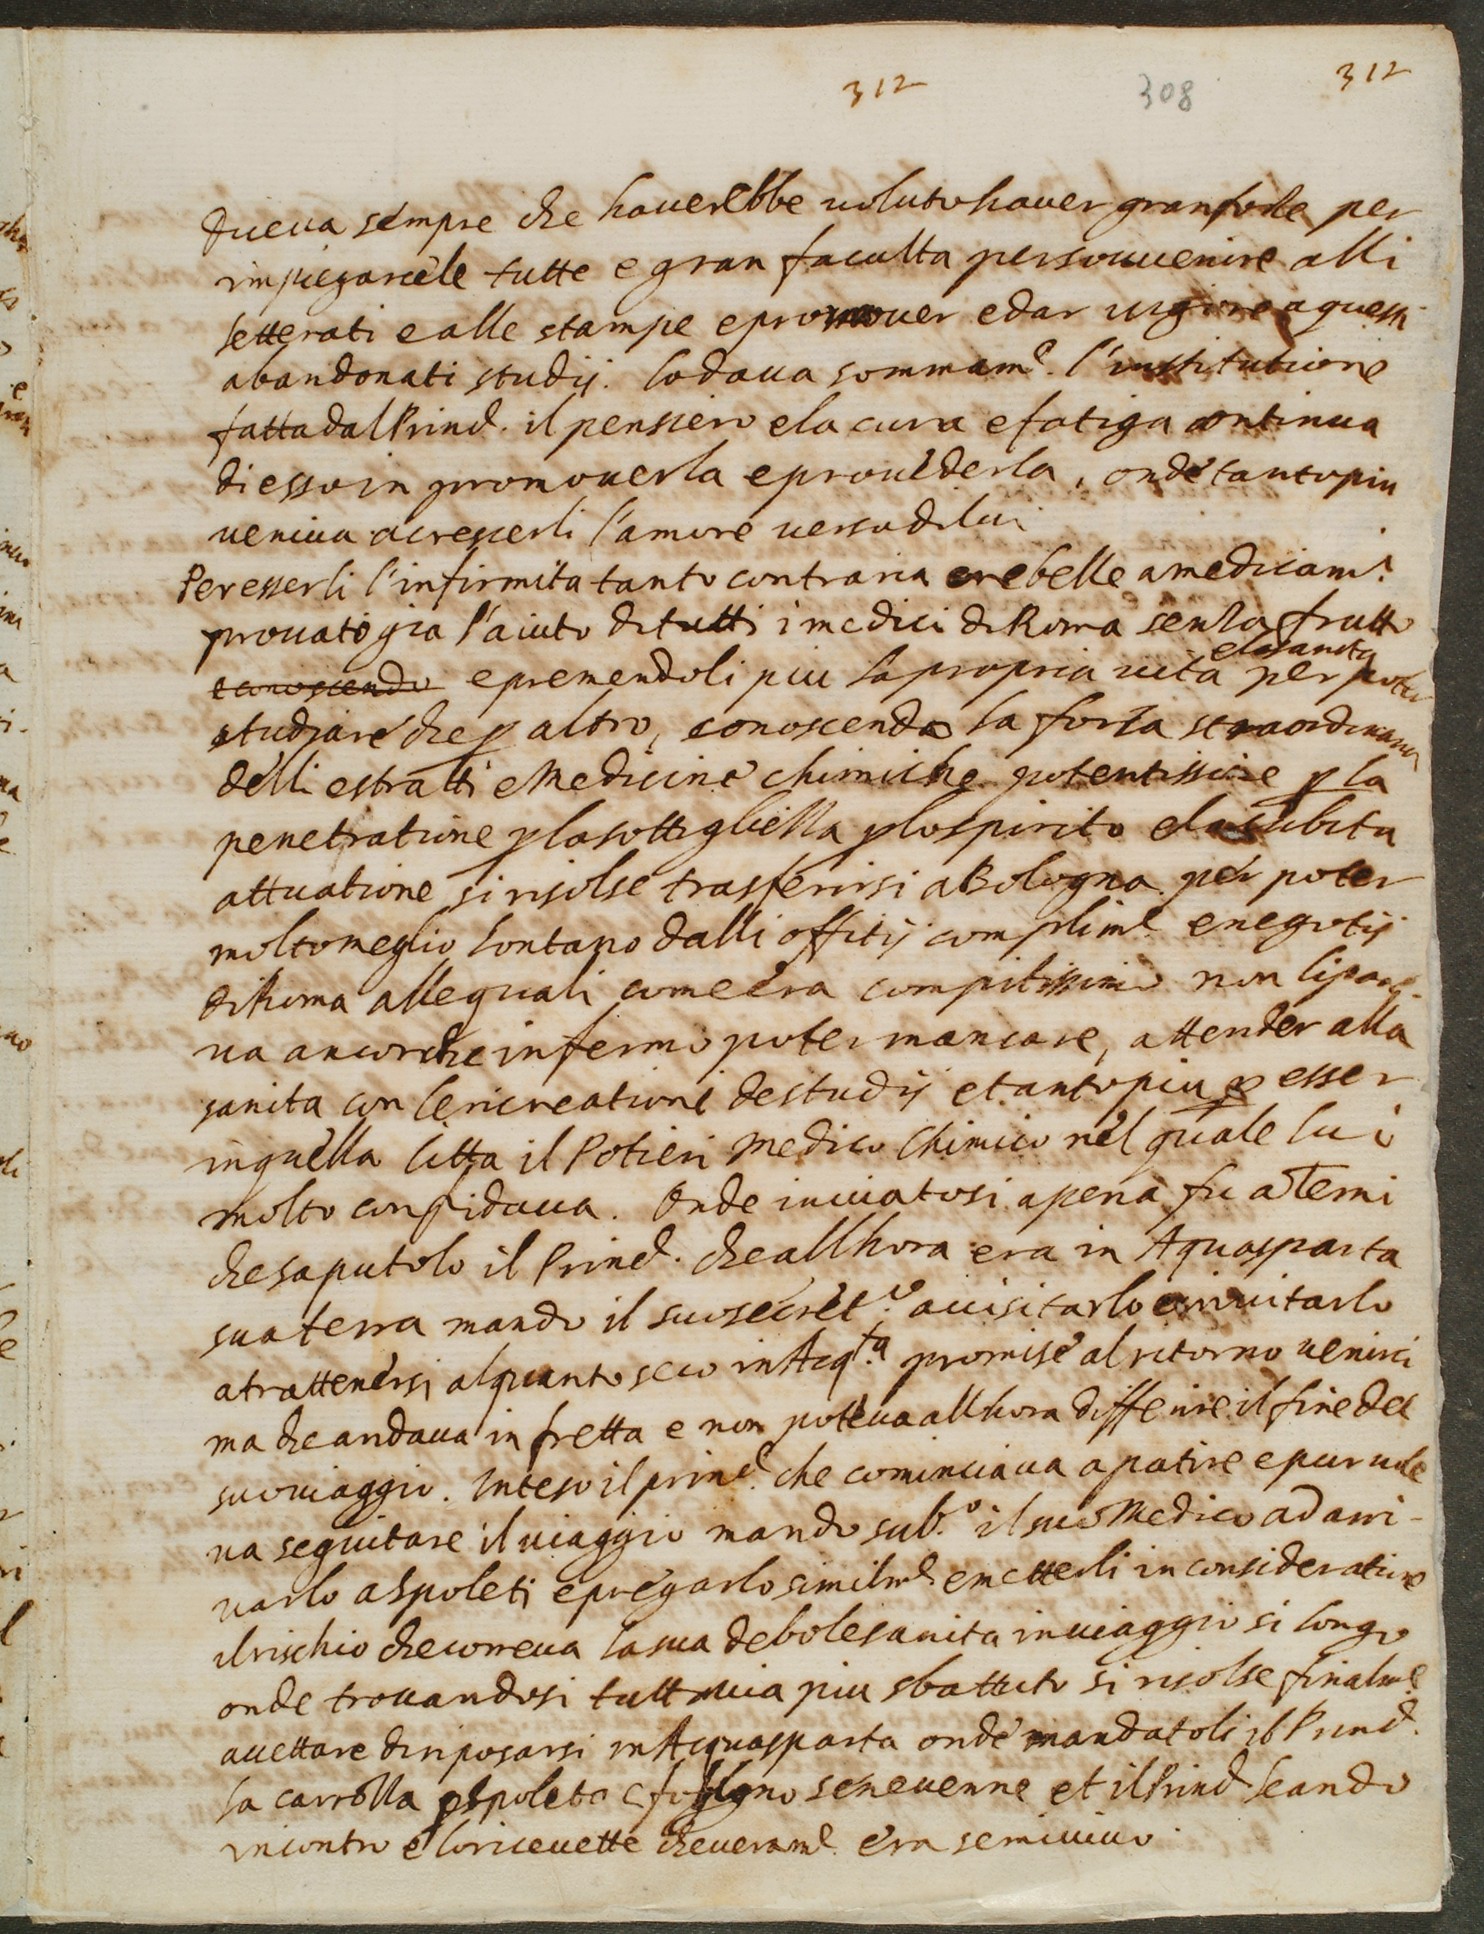 312 308 312
diceua sempre che hauerebbe uoluto hauer gran forze per
impiegarcele tutte e gran faculta per souuenire alli
letterati e alle stampe e promouer e dar uigore a questi
abandonati studij. lodaua sommam.e l'institutione
fatta dal Princ.e il pensiero e la cura e fatiga continua
di esso in promouerla e prouederla, onde tanto piu
ueniua a crescerli l'amore uerso di lui
Per esserli l'infirmita tanto contraria e rebelle a medicam.ti
prouato gia l'aiuto di tutti i medici di Roma senza frutto
e conoscendo e premendoli piu la propria uita e la sanità per poter
studiare che p altro, conoscendo la forza straordinaria
delli estratti e Medicine chimiche potentissime p la
penetratione p la sottigliezza p lo spirito e la subita
attuatione si risolse trasferirsi a Bologna per poter
molto meglio lontano dalli offitij complim.ti e negotij
di Roma alle quali come era compitissimo non li pare-
ua ancorche infermo poter mancare, attender alla
sanita con le ricreationi de studij et tanto piu p esser
in quella Citta il Potieri Medico Chimico nel quale lui
molto confidaua. Onde inuiatosi apena fu a Terni
che saputolo il Princ.e che all hora era in Aquasparta
sua terra mando il suo secret.o a uisitarlo e inuitarlo
a trattenersi alquanto seco in Acq.ta promise al ritorno uenirci
ma che andaua in fretta e non poteua all hora differire il fine del
suo uiaggio. Inteso il princ.e che cominciaua a patire e pur uole
ua seguitare il uiaggio mando sub.o il suo Medico ad arri-
uarlo a Spoleti e pregarlo similm.e e metterli in consideratione
il rischio che correua la sua debole sanita in uiaggio si longo
onde trouandosi tutta uia piu sbattuto si risolse finalm.e
accettare di riposarsi in Acquasparta onde mandatoli il Princ.e
la carrozza a Spoleto e foligno se ne uenne et il Princ.e li ando
incontro e lo riceuette che ueram.e era semiuiuo.